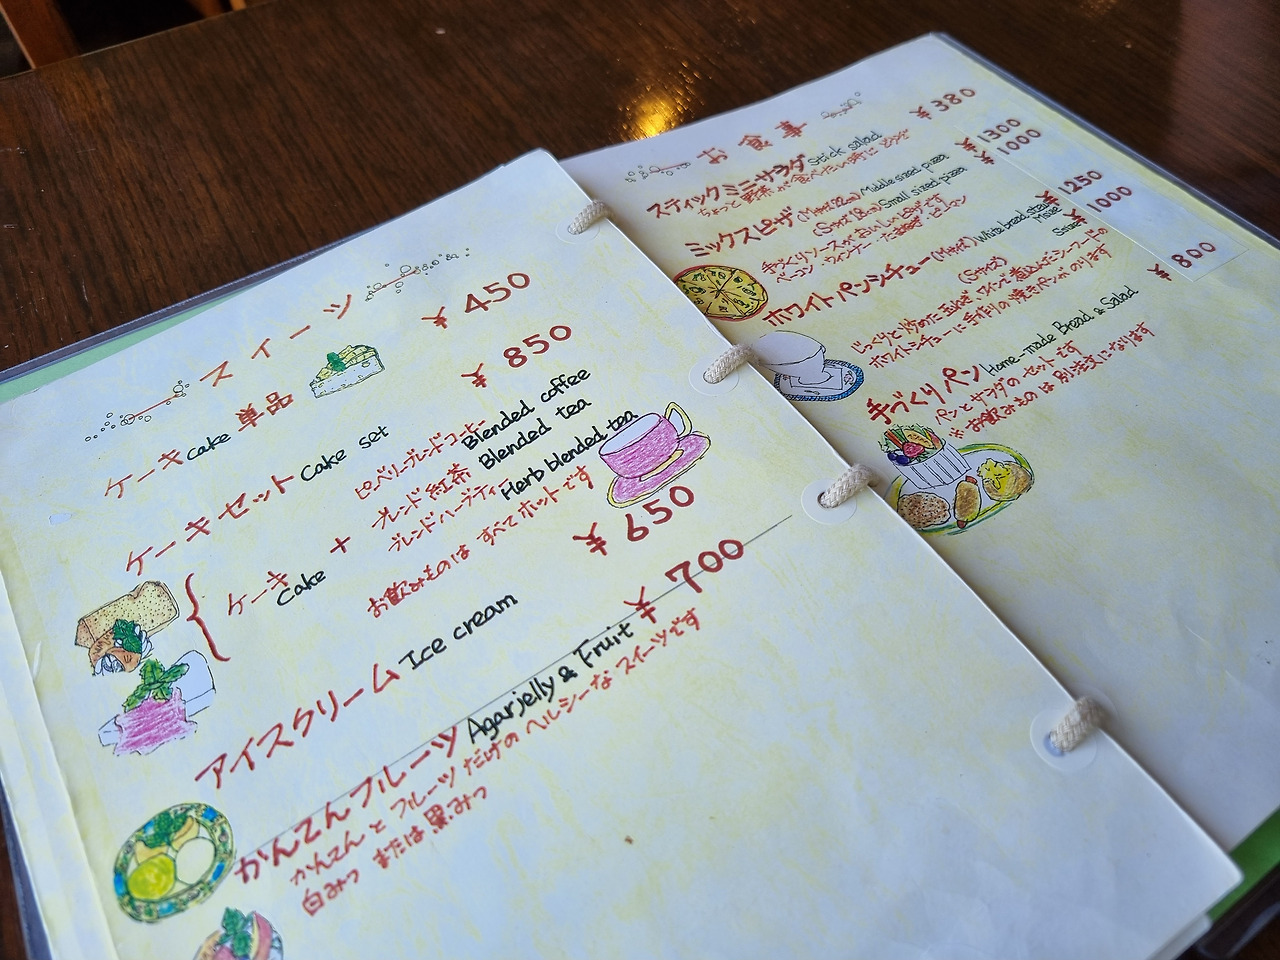 スイーツ
ケーキ cake 単品 ¥450
ケーキセット Cake set ¥850
ケーキ Cake +
ピーベリーブレンドコーヒー Blended coffee
ブレンド紅茶 Blended tea
ブレンドハーブティー Herb blended tea
お飲みものは すべてホットです
アイスクリーム Ice cream ¥650
かんてんフルーツ Agarjelly & Fruit ¥700
かんてんとフルーツだけのヘルシーなスイーツです
白みつ または 黒みつ
お食事
スティックミニサラダ Stick salad ¥380
ちょっと野菜が食べたい時に どうぞ
ミックスピザ (Mサイズ22cm) Middle sized pizza ¥1300
(Sサイズ18cm) Small sized pizza ¥1000
手づくりソースがおいしいピザです
ベーコン・ウィンナー・たまねぎ・ピーマン
ホワイトパンシチュー (Mサイズ) White bread stew ¥1250
(Sサイズ) ¥1000
じっくりと炒めた玉ねぎ・ワインで煮込んだシーフードの
ホワイトシチューに手作りの焼きパンがのります
手づくりパン Home-made Bread & Salad ¥800
パンとサラダのセットです
※お飲みものは別注文になります